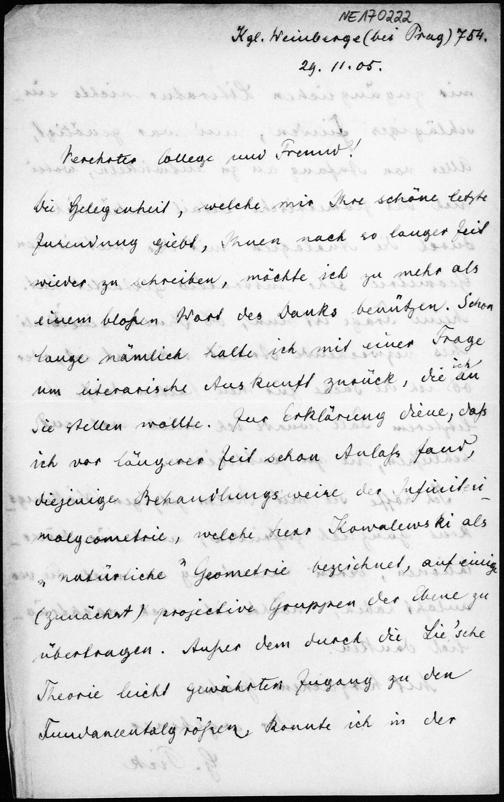 NE170222
Kgl. Weinberge (bei Prag) 754.
29. 11. 05.
Verehrter College und Freund!
Die Gelegenheit, welche mir Ihre schöne letzte
Zusendung giebt, Ihnen nach so langer Zeit
wieder zu schreiben, möchte ich zu mehr als
einem bloßen Wort des Danks benützen. Schon
lange nämlich halte ich mit einer Frage
um literarische Auskunft zurück, die ich an
Sie stellen wollte. Zur Erklärung diene, daß
ich vor längerer Zeit schon Anlaß fand,
diejenige Behandlungsweise der Infinitesi-
malgeometrie, welche Herr Kowalewski als
„natürliche" Geometrie bezeichnet, auf einige
(zunächst) projective Gruppen der Ebene zu
übertragen. Außer dem durch die Lie'sche
Theorie leicht gewährten Zugang zu den
Fundamentalgrößen, konnte ich in der